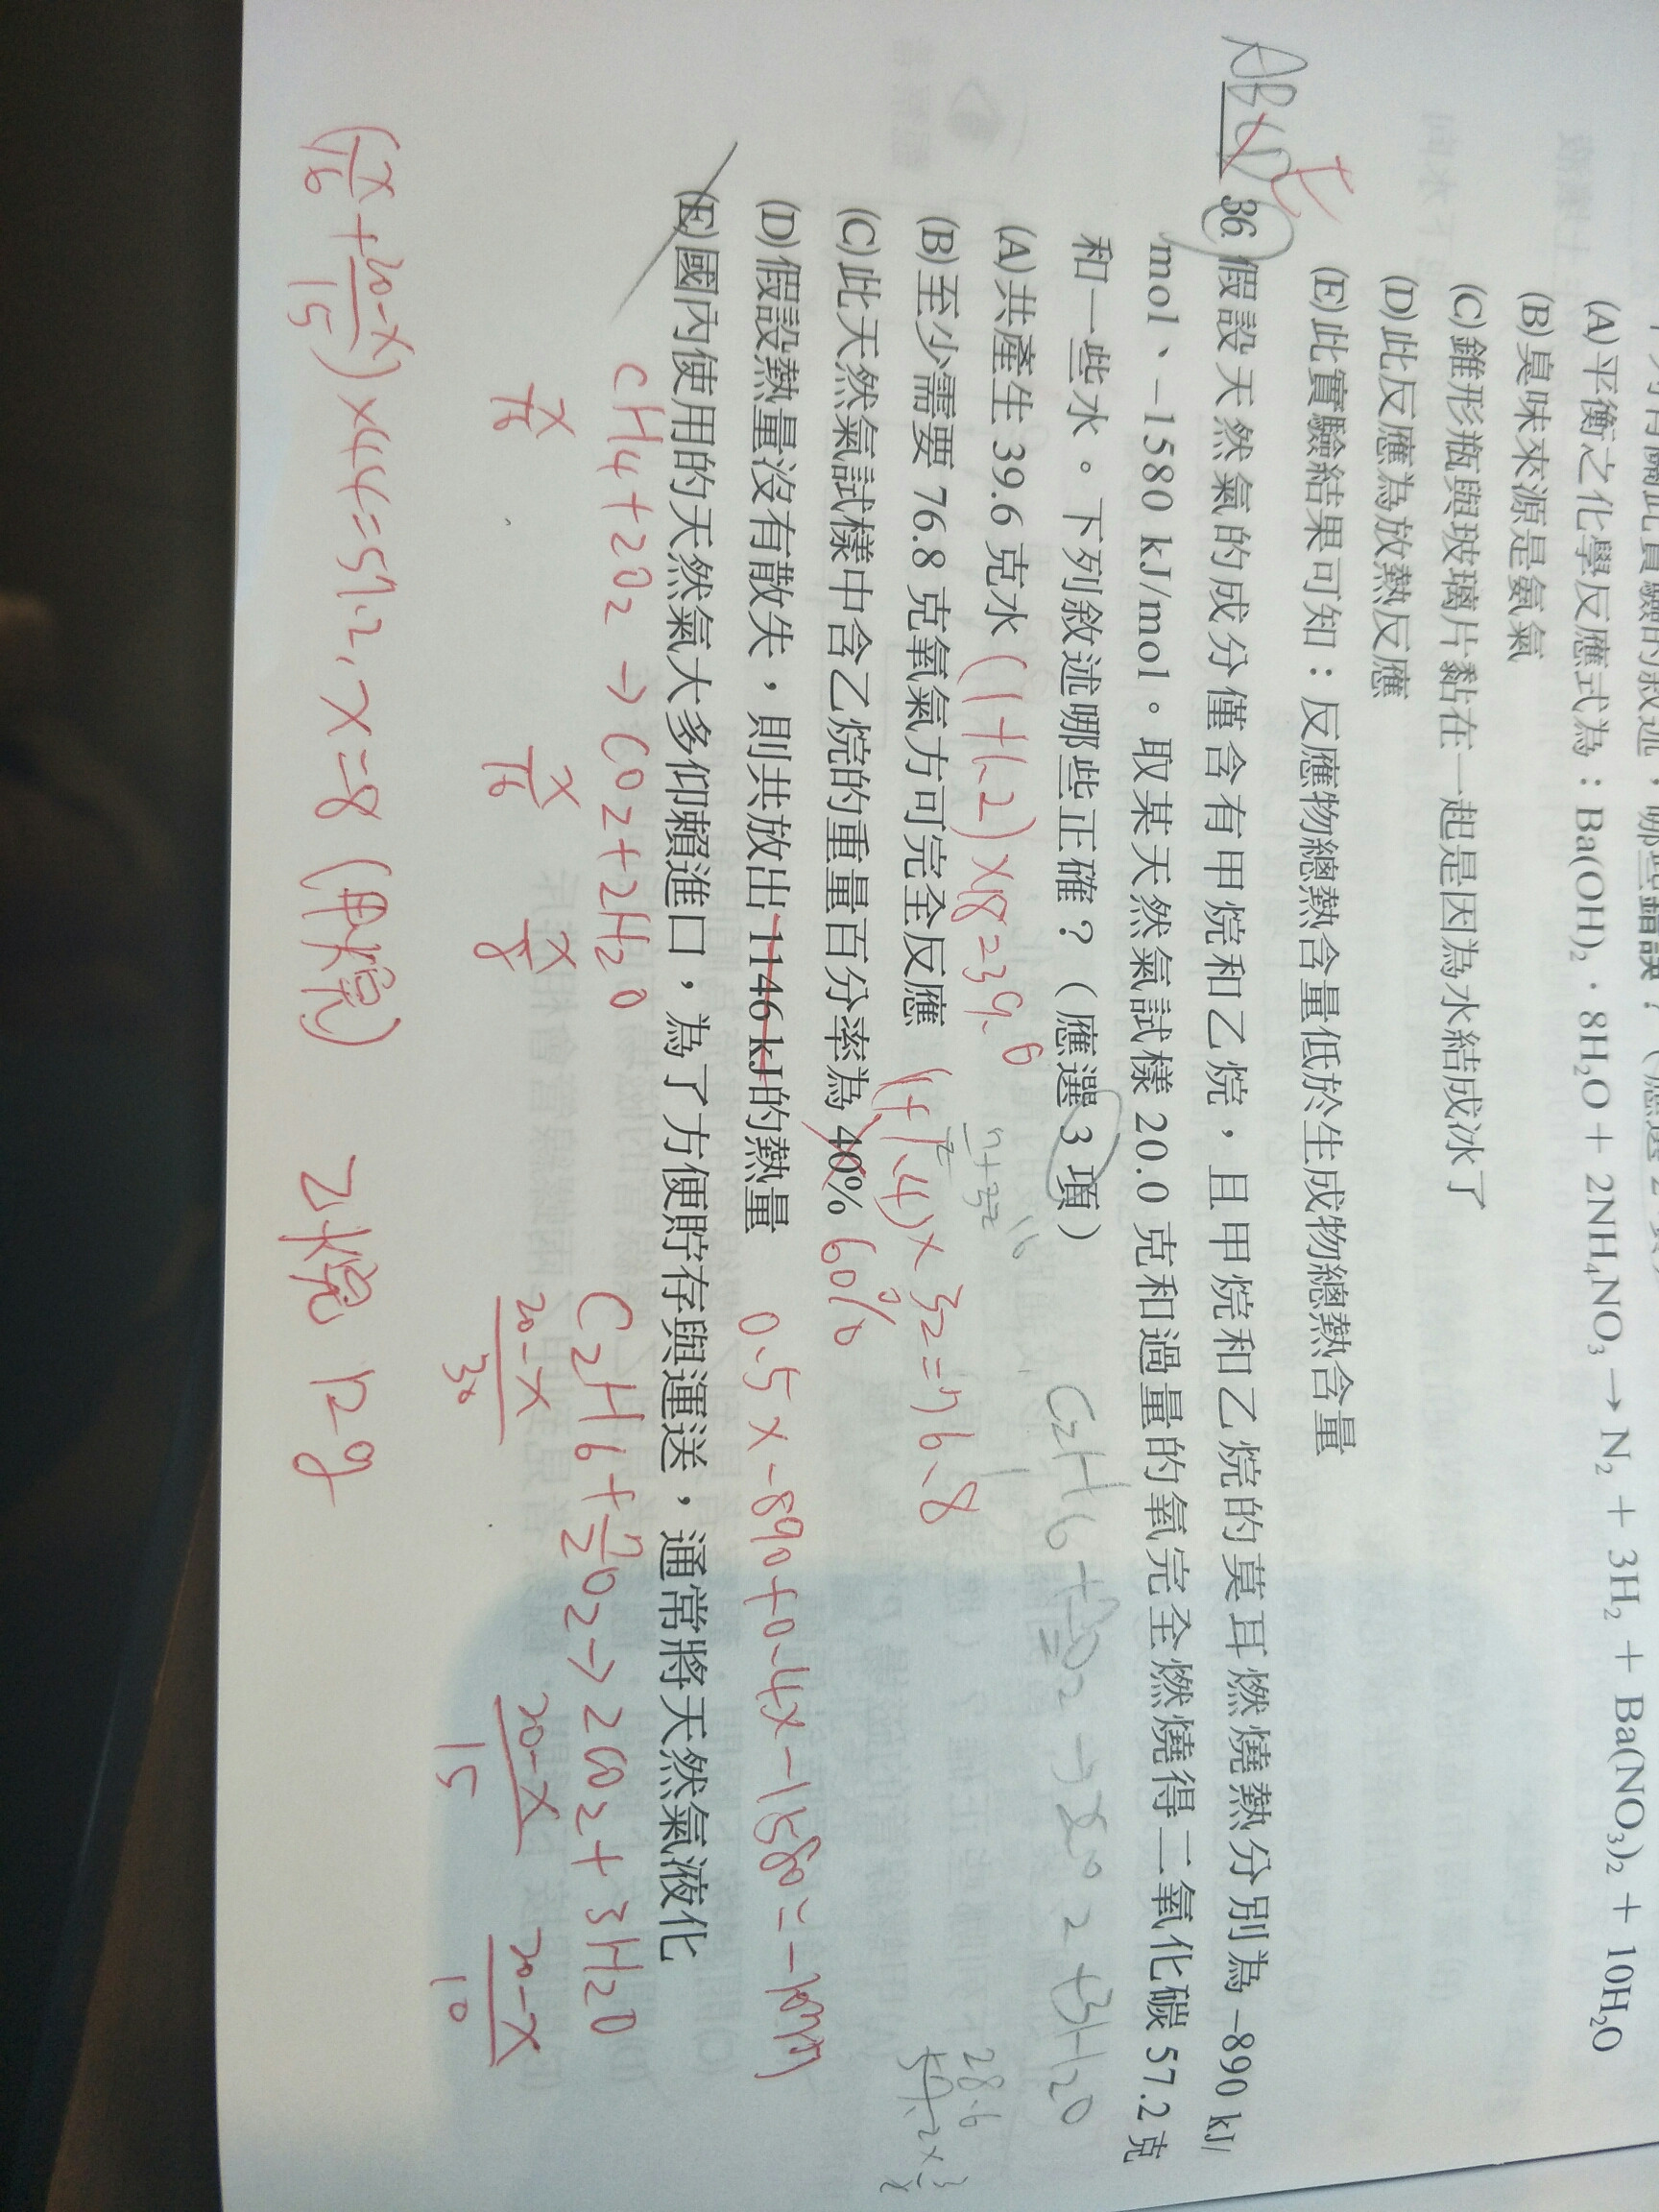 (A)平衡之化學反應式為：Ba(OH)₂．8H₂O + 2NH₄NO₃ → N₂ + 3H₂ + Ba(NO₃)₂ + 10H₂O
(B)臭味來源是氨氣
(C)錐形瓶與玻璃片黏在一起是因為水結成冰了
(D)此反應為放熱反應
(E)此實驗結果可知：反應物總熱含量低於生成物總熱含量
36. 假設天然氣的成分僅含有甲烷和乙烷，且甲烷和乙烷的莫耳燃燒熱分別為 –890 kJ/
mol、–1580 kJ/mol。取某天然氣試樣 20.0 克和過量的氧完全燃燒得二氧化碳 57.2 克
和一些水。下列敘述哪些正確？（應選 3 項）
C2H6 + O2 → 2CO2 + 3H2O
(A)共產生 39.6 克水 (1+1.2)×18=39.6
(B)至少需要 76.8 克氧氣方可完全反應 (1+1.4)×32=76.8
28.6
(C)此天然氣試樣中含乙烷的重量百分率為 40% 60%
(D)假設熱量沒有散失，則共放出 1146 kJ的熱量 0.5×-890+0.4×-1580=-1077
(E)國內使用的天然氣大多仰賴進口，為了方便貯存與運送，通常將天然氣液化
CH4+2O2 → CO2+2H2O C2H6+7/2O2→2CO2+3H2O
x/16 x/16 x/8 20-x/30 20-x/15 20-x/10
(x/16+20-x/15)×44=57.2, x=8 (甲烷) 乙烷 12g